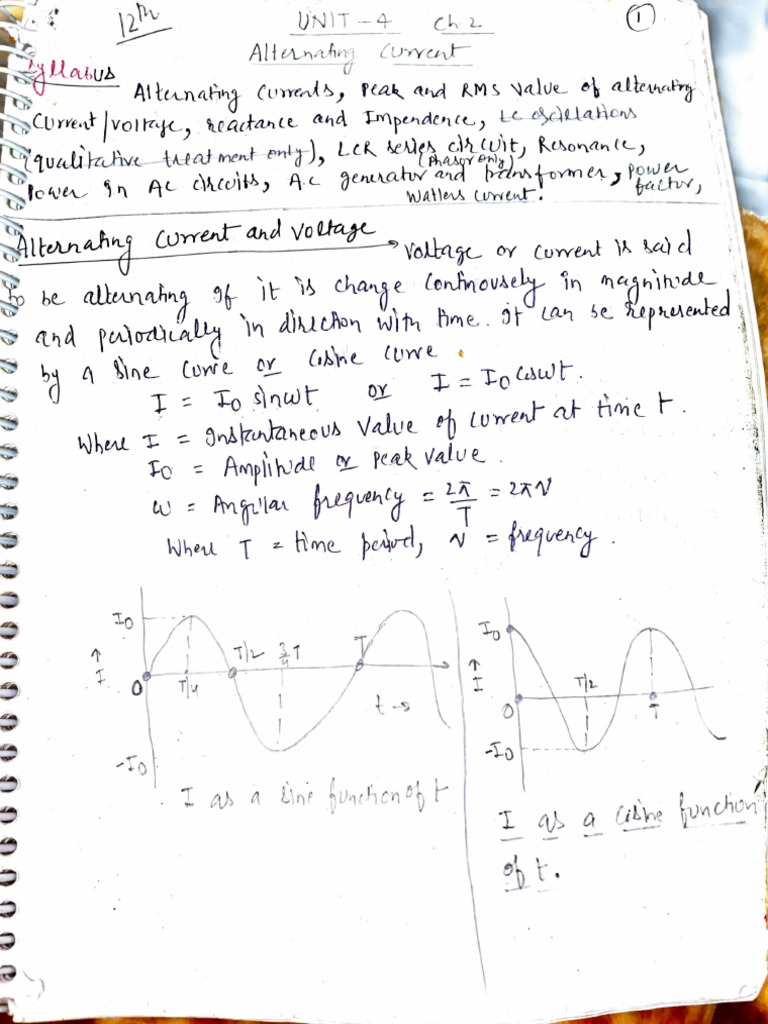 12th
UNIT - 4 Ch. 2
①
Alternating Current
Syllabus
Alternating Currents, Peak and RMS value of alternating
Current/voltage, reactance and Impendence, Lc oscillations
(qualitative treatment only), LCR series circuit, Resonance,
(Phasor only)
Power in AC circuits, A.C generator and transformer, power factor,
Wattless current.
Alternating Current and Voltage → Voltage or current is said
to be alternating if it is change continously in magnitude
and periodically in direction with time. It can be represented
by a sine curve or cosine curve.
I = I0 sinωt or I = I0 cosωt.
Where I = Instantaneous value of current at time t.
I0 = Amplitude or peak value.
ω = Angular frequency = 2π/T = 2πν
Where T = time period, ν = frequency.
I0
↑
I
O
T/4
T/2
3/4 T
T
t →
-I0
I as a sine function of t
I0
↑
I
O
T/2
T
-I0
I as a cosine function
of t.